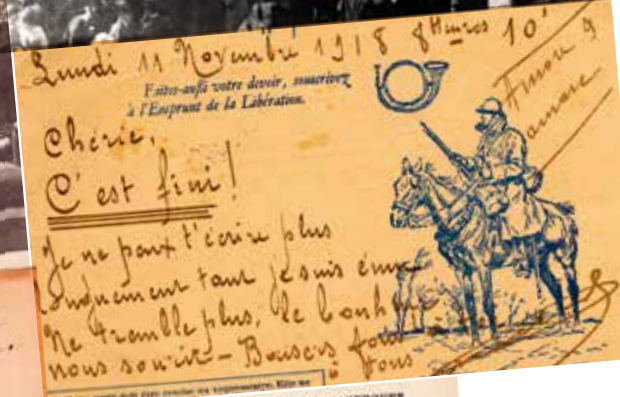 Lundi 11 Novembre 1918 8 Heures 10'
Faites aussi votre devoir, souscrivez
à l'Emprunt de la Libération.
Chérie,
C'est fini!
Je ne peux t'écrire plus
longuement tant je suis ému
Ne tremble plus, le bonheur
nous sourit - Baisers fous
à tous